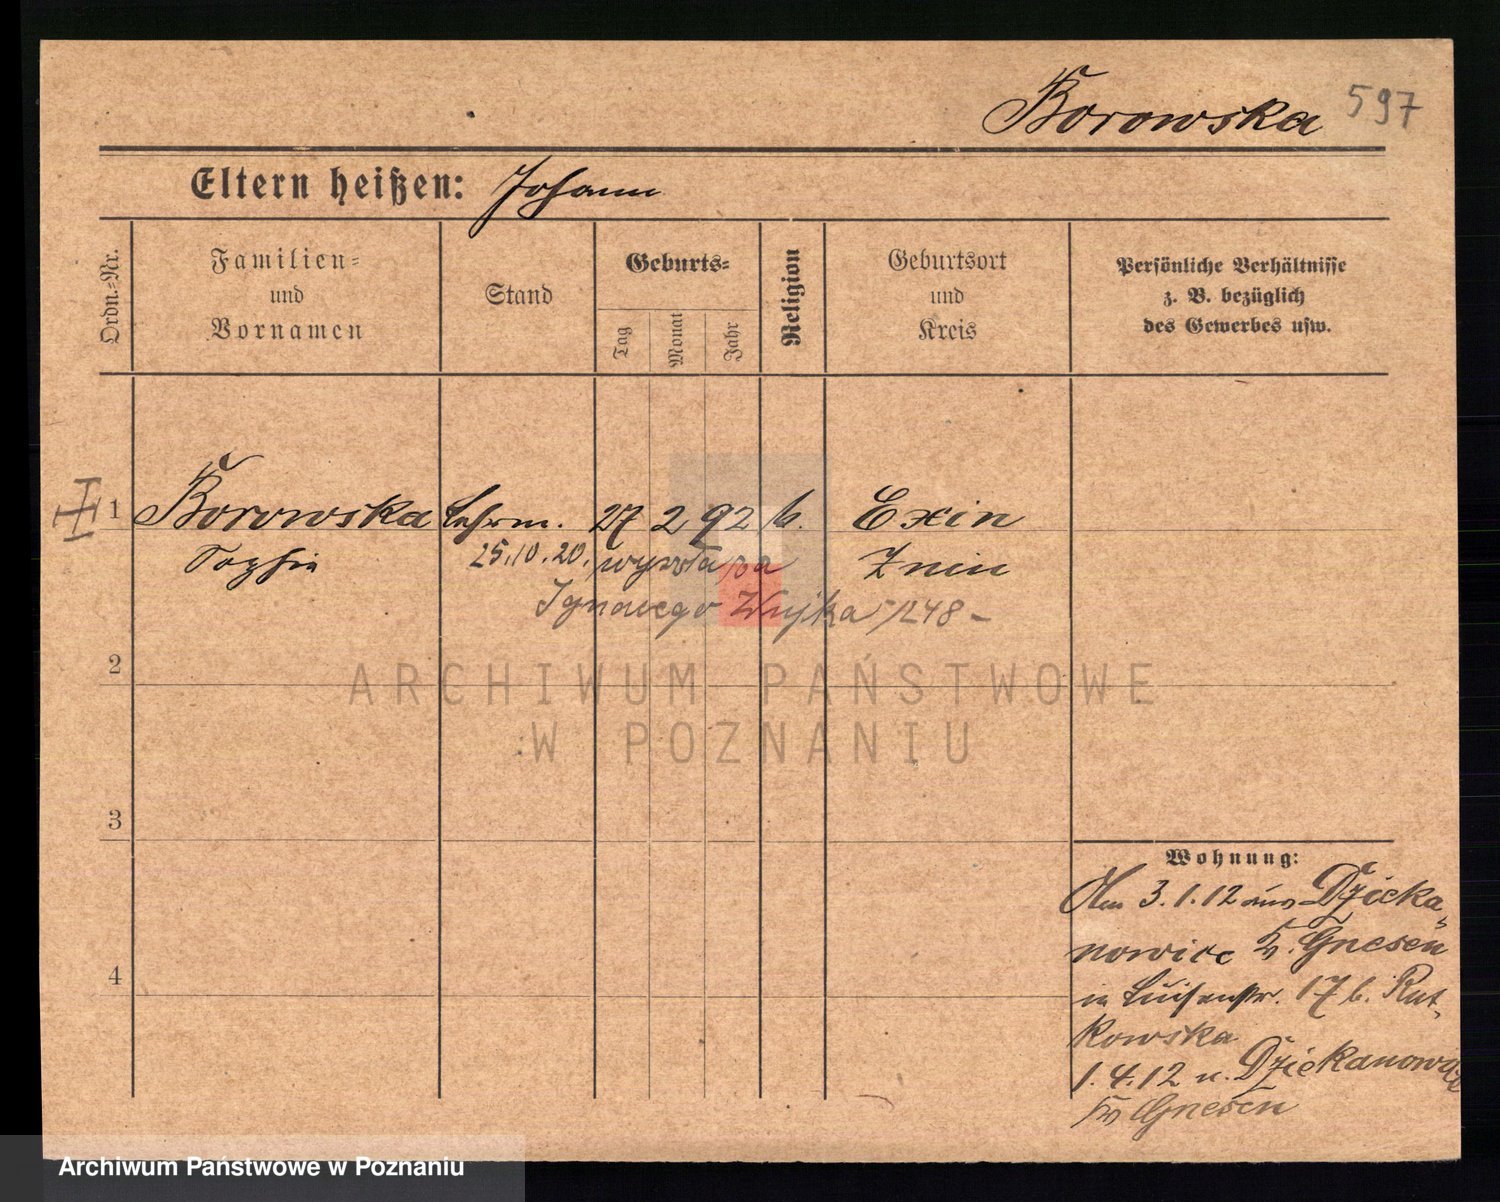 Borowska 597
Eltern heißen: Johann
Ordn.-Nr.
Familien-
und
Vornamen
Stand
Geburts-
Tag
Monat
Jahr
Religion
Geburtsort
und
Kreis
Persönliche Verhältnisse
z. B. bezüglich
des Gewerbes usw.
1 Borowska 27 2 92 k. Exin
Sophie 25.10.20. wyszła za Znin
Ignacego Wujka 5/248 -
2
ARCHIWUM PAŃSTWOWE
W POZNANIU
3
4
Wohnung:
Am 3.1.12 aus Dzieka-
nowice Kr. Gnesen
in Luisenstr. 17 b. Rut-
kowska
1.4.12 n. Dziekanowice
Kr Gnesen
Archiwum Państwowe w Poznaniu